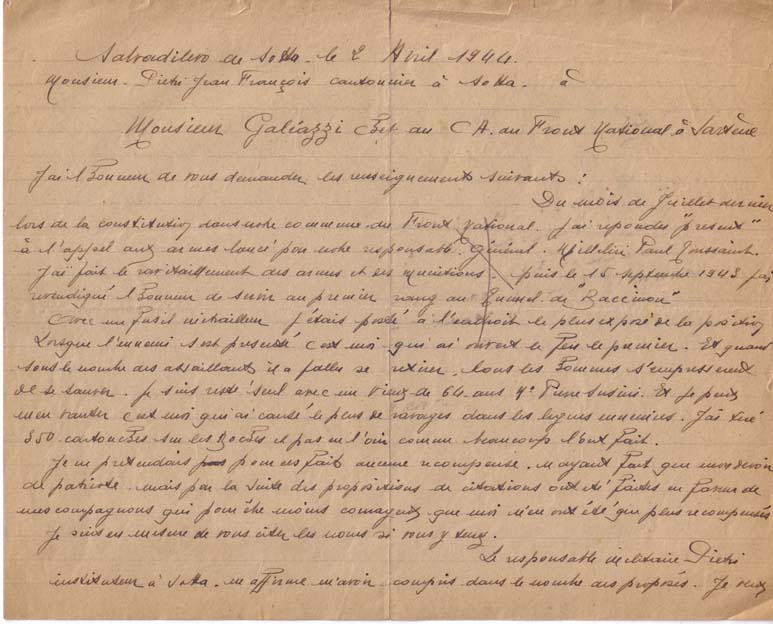 Salvadilevo de Sotta. le 2 Avril 1944.
Monsieur. Pietri Jean François cantonnier à Sotta. à
Monsieur Galéazzi Chef au C A. au Front National à Sartène
J'ai l'Honneur de vous demander les renseignements suivants :
Du mois de Juillet dernier
lors de la constitution dans notre commune du Front National. J'ai repondu "présent"
à l'appel aux armes lancé par notre responsable. général. Milleliri Paul Toussaint.
J'ai fait le ravitaillement des armes et des munitions. puis le 15 septembre 1943 j'ai
revendiqué l'Honneur de servir au premier rang au Tunnel de "Baccinou"
Avec un fusil mitrailleur j'étais posté à l'endroit le plus exposé de la position
Lorsque l'ennemi s'est presenté c'est moi qui ai ouvert le feu le premier. Et quand
sous le nombre des assaillants il a fallu se retirer, tous les hommes s'empressèrent
de se sauver. je suis resté seul avec un vieux de 64 ans Susini. Et je peux
m'en vanter c'est moi qui ai causé le plus de ravages dans les lignes ennemies. J'ai tiré
350 cartouches sur les Boches et pas en l'air comme beaucoup l'ont fait.
Je ne pretendais pour ces fait aucune recompense. n'ayant fait que mon devoir
de patriote. mais par la suite des propositions de citations ont été faites en faveur de
mes compagnons qui pour être moins courageux que moi n'en ont été que plus recompensés
Je suis en mesure de vous citer les noms si vous y tenez.
Le responsable militaire Pietri
instituteur à Sotta. m'affirme m'avoir compris dans le nombre des proposés. Je veux